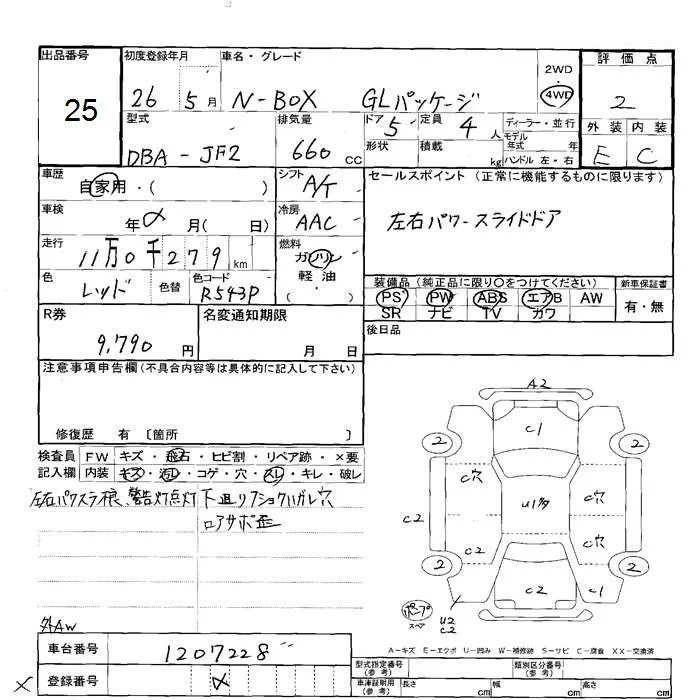 出品番号 初度登録年月 車名・グレード 2WD 評価点
25 26 5月 N-BOX GLパッケージ 4WD 2
型式 排気量 ドア 5 定員 4人 ディーラー・並行 外装 内装
DBA-JF2 660 CC 形状 積載 kg モデル年式 年 E C
ハンドル 左・右
車歴 自家用・( ) シフト A/T セールスポイント (正常に機能するものに限ります)
車検 年 月( 日) 冷房 AAC 左右パワースライドドア
走行 11万0千279km 燃料 ガソリン
軽・油
( )
色 レッド 色替 色コード R543P 装備品(純正品に限り○をつけてください) 新車保証書
PS PW ABS エアB AW 有・無
SR ナビ TV カワ
R券 9,790円 名変通知期限 月 日 後日品
注意事項申告欄(不具合内容等は具体的に記入して下さい)
修復歴 有 〔箇所 〕
検査員 FW キズ・飛石・ヒビ割・リペア跡・×要
記入欄 内装 キズ・汚レ・コゲ・穴・スレ・キレ・破レ
警告灯点灯
外AW
A2
C1
2 2
C穴 C穴
C2 U1多
C2 C穴
2 2
C2 C1
ポンプ
スペア U2
C2
A-キズ E-エクボ U-凹み W-補修跡 S-サビ C-腐食 XX-交換済
車台番号 1207228
登録番号
型式指定番号(参考) 類別区分番号(参考)
車庫証明用(参考) 長さ cm 幅 cm 高さ cm